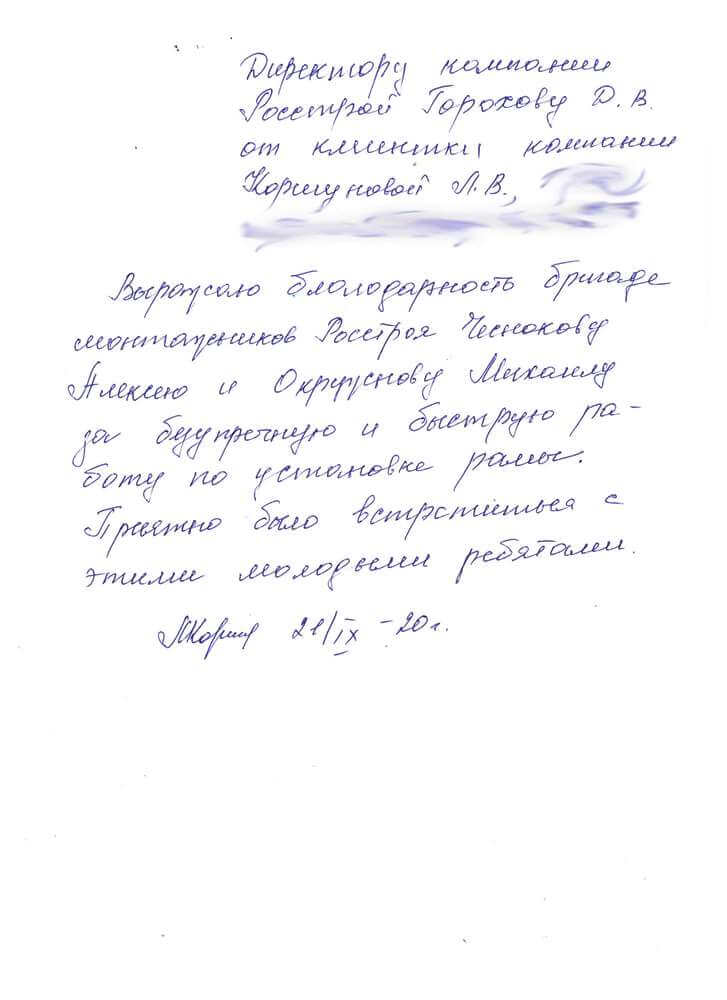 Директору компании
Росстрой Горохову Д.В.
от клиентки компании
Коршуновой Л.В.,
Выражаю благодарность бригаде
монтажников Росстроя Чеснокову
Алексею и Окружнову Михаилу
за безупречную и быструю ра-
боту по установке рамы.
Приятно было встретиться с
этими молодыми ребятами.
ЛКорш 21/IX -20г.